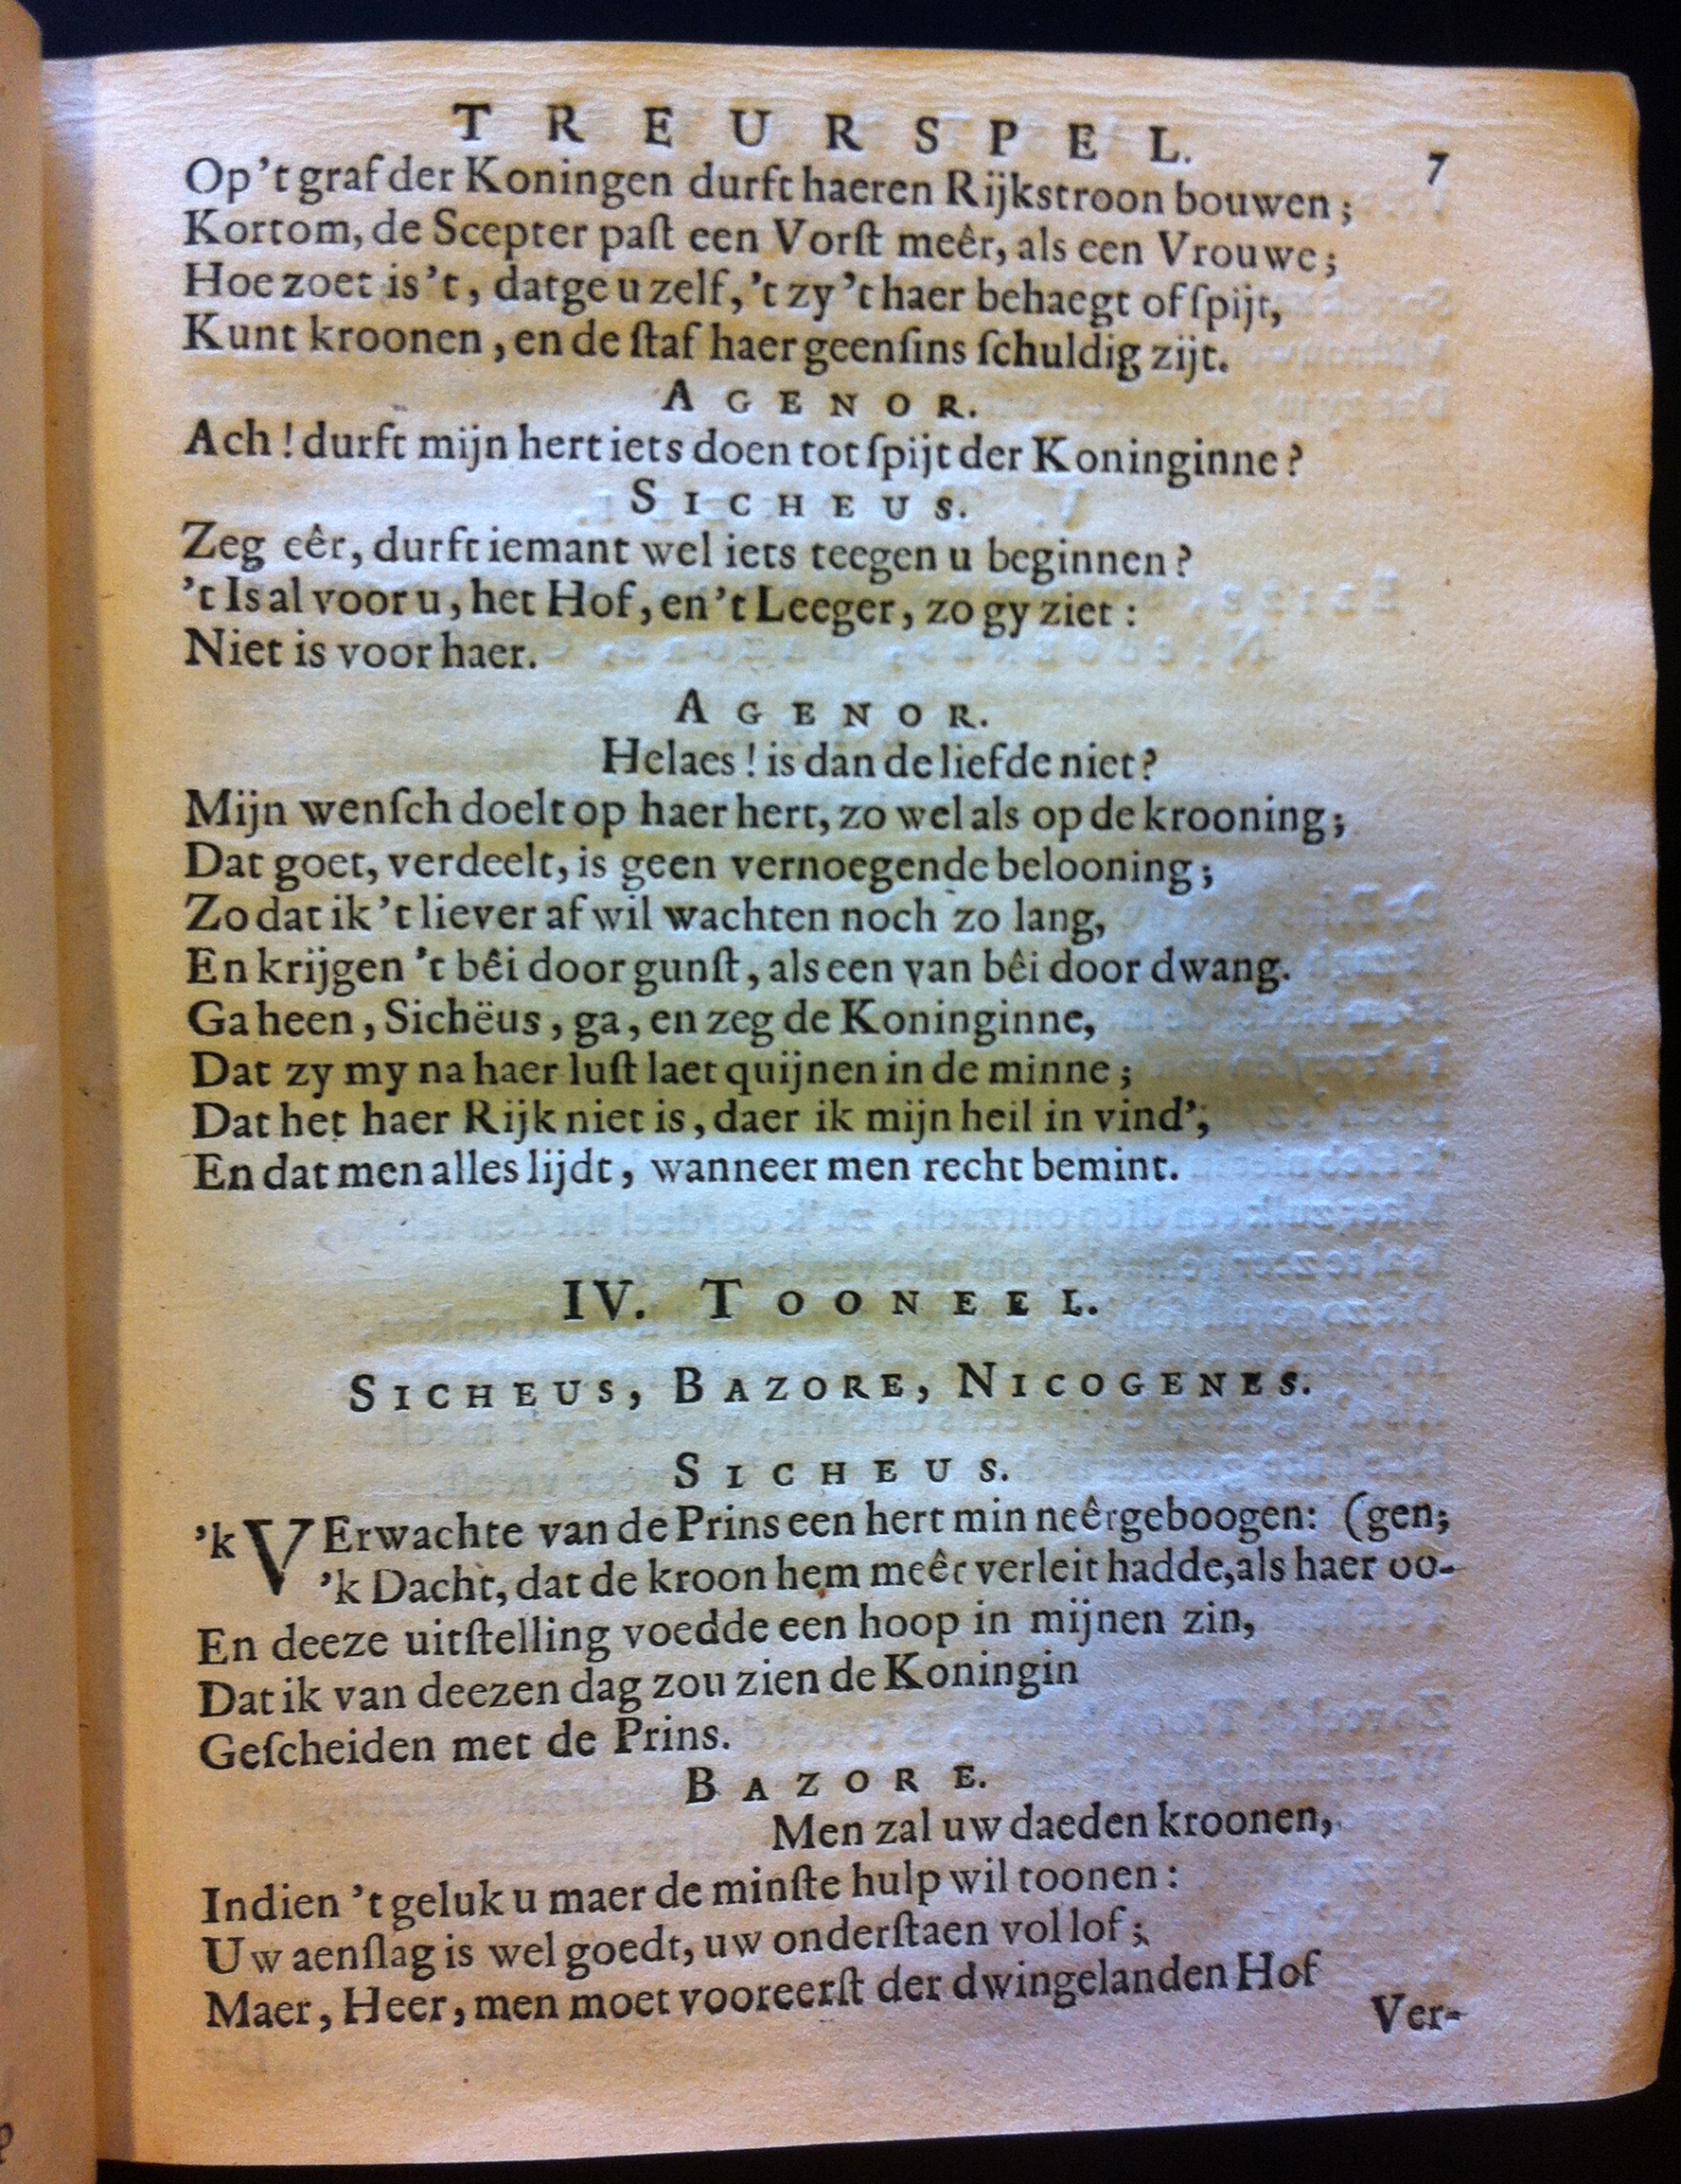 TREURSPEL. 7
Op 't graf der Koningen durft haeren Rijkstroon bouwen;
Kortom, de Scepter paſt een Vorſt meêr, als een Vrouwe;
Hoe zoet is 't, datge u zelf, 't zy 't haer behaegt of ſpijt,
Kunt kroonen, en de ſtaf haer geenſins ſchuldig zijt.
AGENOR.
Ach! durft mijn hert iets doen tot ſpijt der Koninginne?
SICHEUS.
Zeg eêr, durft iemant wel iets teegen u beginnen?
't Is al voor u, het Hof, en 't Leeger, zo gy ziet:
Niet is voor haer.
AGENOR.
Helaes! is dan de liefde niet?
Mijn wenſch doelt op haer hert, zo wel als op de krooning;
Dat goet, verdeelt, is geen vernoegende belooning;
Zo dat ik 't liever af wil wachten noch zo lang,
En krijgen 't bêi door gunſt, als een van bêi door dwang.
Ga heen, Sichëus, ga, en zeg de Koninginne,
Dat zy my na haer luſt laet quijnen in de minne;
Dat het haer Rijk niet is, daer ik mijn heil in vind';
En dat men alles lijdt, wanneer men recht bemint.
IV. TOONEEL.
SICHEUS, BAZORE, NICOGENES.
SICHEUS.
'k VErwachte van de Prins een hert min neêrgeboogen: (gen;
'k Dacht, dat de kroon hem meêr verleit hadde, als haer oo-
En deeze uitſtelling voedde een hoop in mijnen zin,
Dat ik van deezen dag zou zien de Koningin
Geſcheiden met de Prins.
BAZORE.
Men zal uw daeden kroonen,
Indien 't geluk u maer de minſte hulp wil toonen:
Uw aenſlag is wel goedt, uw onderſtaen vol lof;
Maer, Heer, men moet vooreerſt der dwingelanden Hof
Ver-